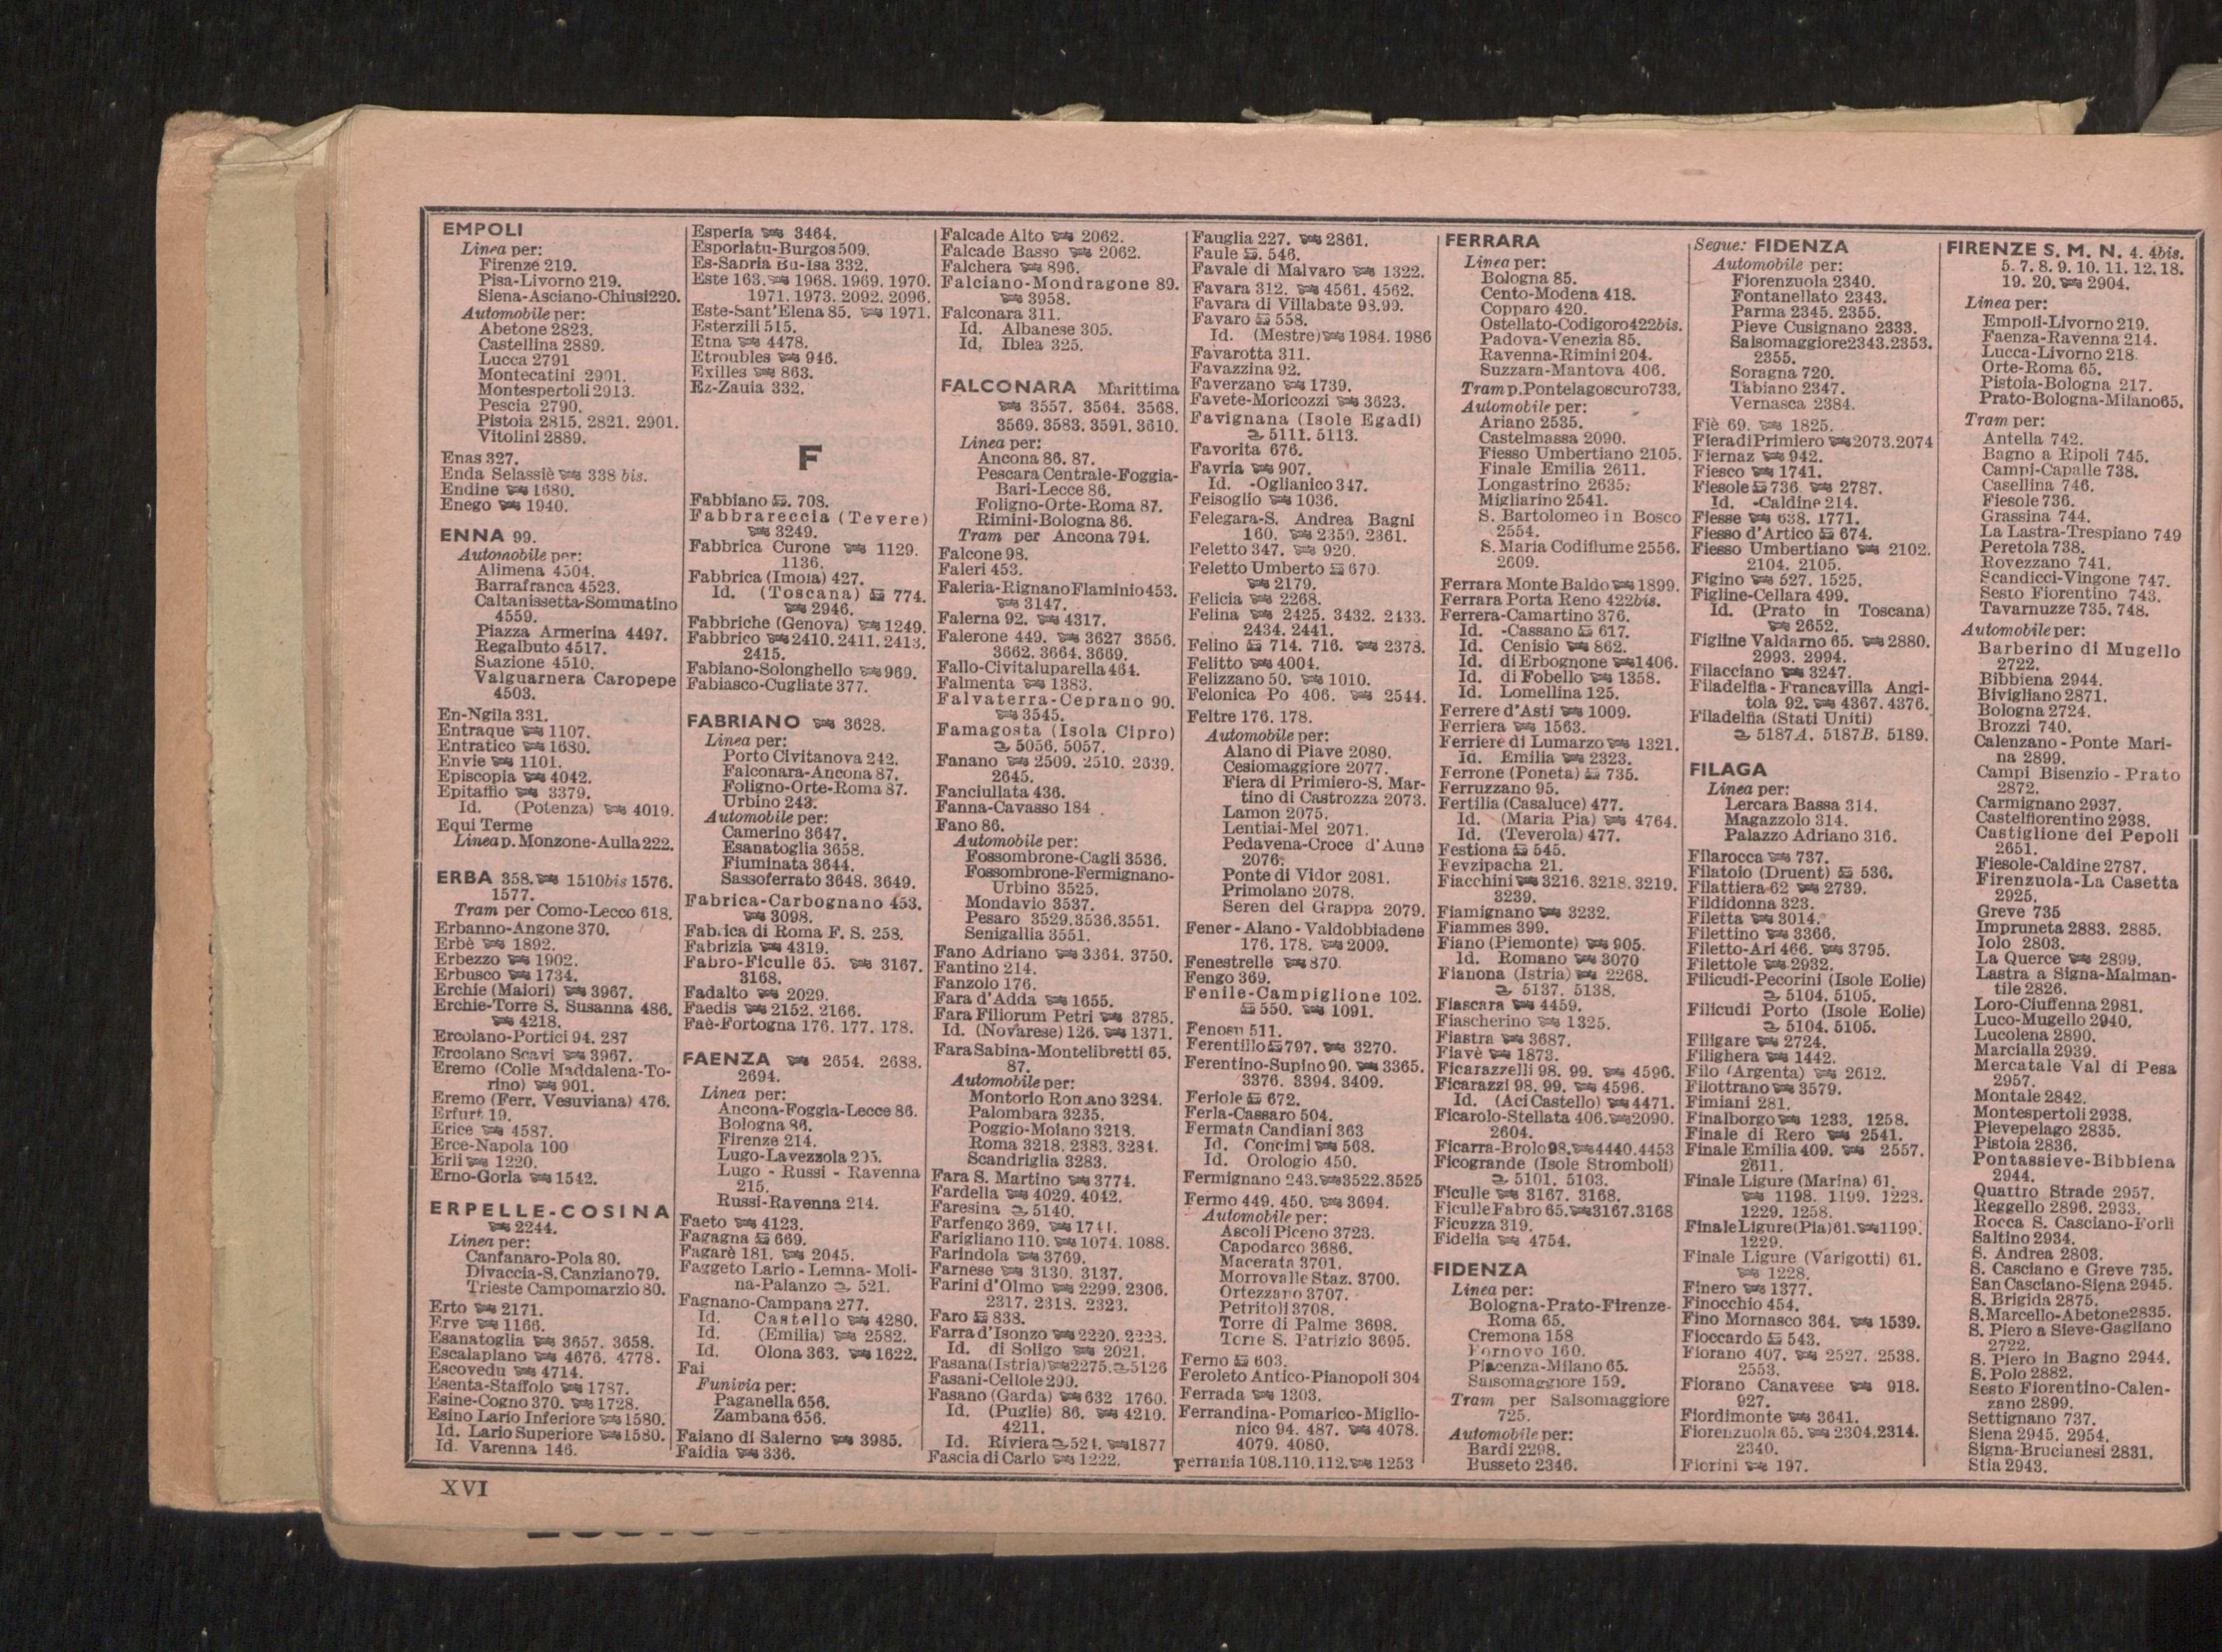 EMPOLI
Linea per:
Firenze 219.
Pisa-Livorno 219.
Siena-Asciano-Chiusi 220.
Automobile per:
Abetone 2823.
Castellina 2889.
Lucca 2791
Montecatini 2901.
Montespertoli 2913.
Pescia 2790.
Pistoia 2815. 2821. 2901.
Vitolini 2889.
Enas 327.
Enda Selassiè 338 bis.
Endine 1680.
Enego 1940.
ENNA 99.
Automobile per:
Alimena 4504.
Barrafranca 4523.
Caltanissetta-Sommatino
4559.
Piazza Armerina 4497.
Regalbuto 4517.
Stazione 4510.
Valguarnera Caropepe
4503.
En-Ngila 331.
Entraque 1107.
Entratico 1680.
Envie 1101.
Episcopia 4042.
Epitaffio 3379.
Id. (Potenza) 4019.
Equi Terme
Linea p. Monzone-Aulla 222.
ERBA 358. 1510bis 1576.
1577.
Tram per Como-Lecco 618.
Erbanno-Angone 370.
Erbè 1892.
Erbezzo 1902.
Erbusco 1734.
Erchie (Maiori) 3967.
Erchie-Torre S. Susanna 486.
4218.
Ercolano-Portici 94. 287
Ercolano Scavi 3967.
Eremo (Colle Maddalena-To-
rino) 901.
Eremo (Ferr. Vesuviana) 476.
Erfurt 19.
Erice 4587.
Erce-Napola 100
Erli 1220.
Erno-Gorla 1542.
ERPELLE-COSINA
2244.
Linea per:
Canfanaro-Pola 80.
Divaccia-S. Canziano 79.
Trieste Campomarzio 80.
Erto 2171.
Erve 1166.
Esanatoglia 3657. 3658.
Escalaplano 4676. 4778.
Escovedu 4714.
Esenta-Staffolo 1787.
Esine-Cogno 370. 1728.
Esino Lario Inferiore 1580.
Id. Lario Superiore 1580.
Id. Varenna 146.
Esperia 3464.
Esporlatu-Burgos 509.
Es-Sabria Bu-Isa 332.
Este 163. 1968. 1969. 1970.
1971. 1973. 2092. 2096.
Este-Sant'Elena 85. 1971.
Esterzili 515.
Etna 4478.
Etroubles 946.
Exilles 863.
Ez-Zauia 332.
F
Fabbiano 708.
Fabbrareccia (Tevere)
3249.
Fabbrica Curone 1129.
1136.
Fabbrica (Imola) 427.
Id. (Toscana) 774.
2946.
Fabbriche (Genova) 1249.
Fabbrico 2410. 2411. 2413.
2415.
Fabiano-Solonghello 969.
Fabiasco-Cugliate 377.
FABRIANO 3628.
Linea per:
Porto Civitanova 242.
Falconara-Ancona 87.
Foligno-Orte-Roma 87.
Urbino 243.
Automobile per:
Camerino 3647.
Esanatoglia 3658.
Fiuminata 3644.
Sassoferrato 3648. 3649.
Fabrica-Carbognano 453.
3098.
Fabrica di Roma F. S. 258.
Fabrizia 4319.
Fabro-Ficulle 65. 3167.
3168.
Fadalto 2029.
Faedis 2152. 2166.
Faè-Fortogna 176. 177. 178.
FAENZA 2654. 2688.
2694.
Linea per:
Ancona-Foggia-Lecce 86.
Bologna 86.
Firenze 214.
Lugo-Lavezzola 205.
Lugo - Russi - Ravenna
215.
Russi-Ravenna 214.
Faeto 4123.
Fagagna 669.
Fagarè 181. 2045.
Faggeto Lario - Lemna - Moli-
na-Palanzo 521.
Fagnano-Campana 277.
Id. Castello 4280.
Id. (Emilia) 2582.
Id. Olona 363. 1622.
Fai
Funivia per:
Paganella 656.
Zambana 656.
Faiano di Salerno 3985.
Faidia 336.
Falcade Alto 2062.
Falcade Basso 2062.
Falchera 896.
Falciano-Mondragone 89.
3958.
Falconara 311.
Id. Albanese 305.
Id. Iblea 325.
FALCONARA Marittima
3557. 3564. 3568.
3569. 3583. 3591. 3610.
Linea per:
Ancona 86. 87.
Pescara Centrale-Foggia-
Bari-Lecce 86.
Foligno-Orte-Roma 87.
Rimini-Bologna 86.
Tram per Ancona 794.
Falcone 98.
Faleri 453.
Faleria-Rignano Flaminio 453.
3147.
Falerna 92. 4317.
Falerone 449. 3627 3656.
3662. 3664. 3669.
Fallo-Civitaluparella 464.
Falmenta 1383.
Falvaterra-Ceprano 90.
3545.
Famagosta (Isola Cipro)
5056. 5057.
Fanano 2509. 2510. 2639.
2645.
Fanciullata 436.
Fanna-Cavasso 184
Fano 86.
Automobile per:
Fossombrone-Cagli 3536.
Fossombrone-Fermignano-
Urbino 3525.
Mondavio 3537.
Pesaro 3529. 3536. 3551.
Senigallia 3551.
Fano Adriano 3364. 3750.
Fantino 214.
Fanzolo 176.
Fara d'Adda 1655.
Fara Filiorum Petri 3785.
Id. (Novarese) 126. 1371.
Fara Sabina-Montelibretti 65.
87.
Automobile per:
Montorio Romano 3284.
Palombara 3235.
Poggio-Moiano 3218.
Roma 3218. 2383. 3284.
Scandriglia 3283.
Fara S. Martino 3774.
Fardella 4029. 4042.
Faresina 5140.
Farfengo 369. 1741.
Farigliano 110. 1074. 1088.
Farindola 3769.
Farnese 3130. 3137.
Farini d'Olmo 2299. 2306.
2317. 2318. 2323.
Faro 838.
Farra d'Isonzo 2220. 2223.
Id. di Soligo 2021.
Fasana (Istria) 2275. 5126
Fasani-Cellole 290.
Fasano (Garda) 632 1760.
Id. (Puglie) 86. 4210.
4211.
Id. Riviera 521. 1877
Fascia di Carlo 1222.
Fauglia 227. 2861.
Faule 546.
Favale di Malvaro 1322.
Favara 312. 4561. 4562.
Favara di Villabate 98.99.
Favaro 558.
Id. (Mestre) 1984. 1986
Favarotta 311.
Favazzina 92.
Faverzano 1739.
Favete-Moricozzi 3623.
Favignana (Isole Egadi)
5111. 5113.
Favorita 676.
Favria 907.
Id. -Oglianico 347.
Feisoglio 1036.
Felegara-S. Andrea Bagni
160. 2359. 2361.
Feletto 347. 920.
Feletto Umberto 670.
2179.
Felicia 2268.
Felina 2425. 3432. 2433.
2434. 2441.
Felino 714. 716. 2378.
Felitto 4004.
Felizzano 50. 1010.
Felonica Po 406. 2544.
Feltre 176. 178.
Automobile per:
Alano di Piave 2080.
Cesiomaggiore 2077.
Fiera di Primiero-S. Mar-
tino di Castrozza 2073.
Lamon 2075.
Lentiai-Mel 2071.
Pedavena-Croce d'Aune
2076.
Ponte di Vidor 2081.
Primolano 2078.
Seren del Grappa 2079.
Fener - Alano - Valdobbiadene
176. 178. 2009.
Fenestrelle 870.
Fengo 369.
Fenile-Campiglione 102.
550. 1091.
Fenosu 511.
Ferentillo 797. 3270.
Ferentino-Supino 90. 3365.
3376. 3394. 3409.
Feriole 672.
Ferla-Cassaro 504.
Fermata Candiani 363
Id. Concimi 568.
Id. Orologio 450.
Fermignano 243. 3522. 3525
Fermo 449. 450. 3694.
Automobile per:
Ascoli Piceno 3723.
Capodarco 3686.
Macerata 3701.
Morrovalle Staz. 3700.
Ortezzano 3707.
Petritoli 3708.
Torre di Palme 3698.
Torre S. Patrizio 3695.
Ferno 603.
Feroleto Antico-Pianopoli 304
Ferrada 1303.
Ferrandina-Pomarico-Miglio-
nico 94. 487. 4078.
4079. 4080.
Ferrania 108.110.112. 1253
FERRARA
Linea per:
Bologna 85.
Cento-Modena 418.
Copparo 420.
Ostellato-Codigoro 422bis.
Padova-Venezia 85.
Ravenna-Rimini 204.
Suzzara-Mantova 406.
Tram p. Pontelagoscuro 733.
Automobile per:
Ariano 2535.
Castelmassa 2090.
Fiesso Umbertiano 2105.
Finale Emilia 2611.
Longastrino 2635.
Migliarino 2541.
S. Bartolomeo in Bosco
2554.
S. Maria Codifiume 2556.
2609.
Ferrara Monte Baldo 1899.
Ferrara Porta Reno 422bis.
Ferrera-Camartino 376.
Id. -Cassano 617.
Id. Cenisio 862.
Id. di Erbognone 1406.
Id. di Fobello 1358.
Id. Lomellina 125.
Ferrere d'Asti 1009.
Ferriera 1563.
Ferriere di Lumarzo 1321.
Id. Emilia 2323.
Ferrone (Poneta) 735.
Ferruzzano 95.
Fertilia (Casaluce) 477.
Id. (Maria Pia) 4764.
Id. (Teverola) 477.
Festiona 545.
Fevzipacha 21.
Fiacchini 3216. 3218. 3219.
3239.
Fiamignano 3232.
Fiammes 399.
Fiano (Piemonte) 905.
Id. Romano 3070
Fianona (Istria) 2268.
5137. 5138.
Fiascara 4459.
Fiascherino 1325.
Fiastra 3687.
Fiavè 1873.
Ficarazzelli 98. 99. 4596.
Ficarazzi 98. 99. 4596.
Id. (Aci Castello) 4471.
Ficarolo-Stellata 406. 2090.
2604.
Ficarra-Brolo 98. 4440.4453
Ficogrande (Isole Stromboli)
5101. 5103.
Ficulle 3167. 3168.
Ficulle Fabro 65. 3167.3168
Ficuzza 319.
Fidelia 4754.
FIDENZA
Linea per:
Bologna-Prato-Firenze-
Roma 65.
Cremona 158
Fornovo 160.
Piacenza-Milano 65.
Salsomaggiore 159.
Tram per Salsomaggiore
725.
Automobile per:
Bardi 2298.
Busseto 2346.
Segue: FIDENZA
Automobile per:
Fiorenzuola 2340.
Fontanellato 2343.
Parma 2345. 2355.
Pieve Cusignano 2333.
Salsomaggiore 2343. 2353.
2355.
Soragna 720.
Tabiano 2347.
Vernasca 2384.
Fiè 69. 1825.
Fiera di Primiero 2073. 2074
Fiernaz 942.
Fiesco 1741.
Fiesole 736. 2787.
Id. -Caldine 214.
Fiesse 638. 1771.
Fiesso d'Artico 674.
Fiesso Umbertiano 2102.
2104. 2105.
Figino 527. 1525.
Figline-Cellara 499.
Id. (Prato in Toscana)
2652.
Figline Valdarno 65. 2880.
2993. 2994.
Filacciano 3247.
Filadelfia - Francavilla Angi-
tola 92. 4367. 4376.
Filadelfia (Stati Uniti)
5187A. 5187B. 5189.
FILAGA
Linea per:
Lercara Bassa 314.
Magazzolo 314.
Palazzo Adriano 316.
Filarocca 737.
Filatoio (Druent) 536.
Filattiera 62 2739.
Fildidonna 323.
Filetta 3014.
Filettino 3366.
Filetto-Ari 466. 3795.
Filettole 2932.
Filicudi-Pecorini (Isole Eolie)
5104. 5105.
Filicudi Porto (Isole Eolie)
5104. 5105.
Filigare 2724.
Filighera 1442.
Filo (Argenta) 2612.
Filottrano 3579.
Fimiani 281.
Finalborgo 1233. 1258.
Finale di Rero 2541.
Finale Emilia 409. 2557.
2611.
Finale Ligure (Marina) 61.
1198. 1199. 1228.
1229. 1258.
Finale Ligure (Pia) 61. 1199.
1229.
Finale Ligure (Varigotti) 61.
1228.
Finero 1377.
Finocchio 454.
Fino Mornasco 364. 1539.
Fioccardo 543.
Fiorano 407. 2527. 2538.
2553.
Fiorano Canavese 918.
927.
Fiordimonte 3641.
Fiorenzuola 65. 2304. 2314.
2340.
Fiorini 197.
FIRENZE S. M. N. 4. 4bis.
5. 7. 8. 9. 10. 11. 12. 18.
19. 20. 2904.
Linea per:
Empoli-Livorno 219.
Faenza-Ravenna 214.
Lucca-Livorno 218.
Orte-Roma 65.
Pistoia-Bologna 217.
Prato-Bologna-Milano 65.
Tram per:
Antella 742.
Bagno a Ripoli 745.
Campi-Capalle 738.
Casellina 746.
Fiesole 736.
Grassina 744.
La Lastra-Trespiano 749
Peretola 738.
Rovezzano 741.
Scandicci-Vingone 747.
Sesto Fiorentino 743.
Tavarnuzze 735. 748.
Automobile per:
Barberino di Mugello
2722.
Bibbiena 2944.
Bivigliano 2871.
Bologna 2724.
Brozzi 740.
Calenzano - Ponte Mari-
na 2899.
Campi Bisenzio - Prato
2872.
Carmignano 2937.
Castelfiorentino 2938.
Castiglione dei Pepoli
2651.
Fiesole-Caldine 2787.
Firenzuola-La Casetta
2925.
Greve 735
Impruneta 2883. 2885.
Iolo 2803.
La Querce 2899.
Lastra a Signa-Malman-
tile 2826.
Loro-Ciuffenna 2981.
Luco-Mugello 2940.
Lucolena 2890.
Marcialla 2939.
Mercatale Val di Pesa
2957.
Montale 2842.
Montespertoli 2938.
Pievepelago 2835.
Pistoia 2836.
Pontassieve-Bibbiena
2944.
Quattro Strade 2957.
Reggello 2896. 2933.
Rocca S. Casciano-Forlì
Saltino 2934.
S. Andrea 2803.
S. Casciano e Greve 735.
San Casciano-Siena 2945.
S. Brigida 2875.
S. Marcello-Abetone 2835.
S. Piero a Sieve-Gagliano
2722.
S. Piero in Bagno 2944.
S. Polo 2882.
Sesto Fiorentino-Calen-
zano 2899.
Settignano 737.
Siena 2945. 2954.
Signa-Brucianesi 2831.
Stia 2943.
XVI